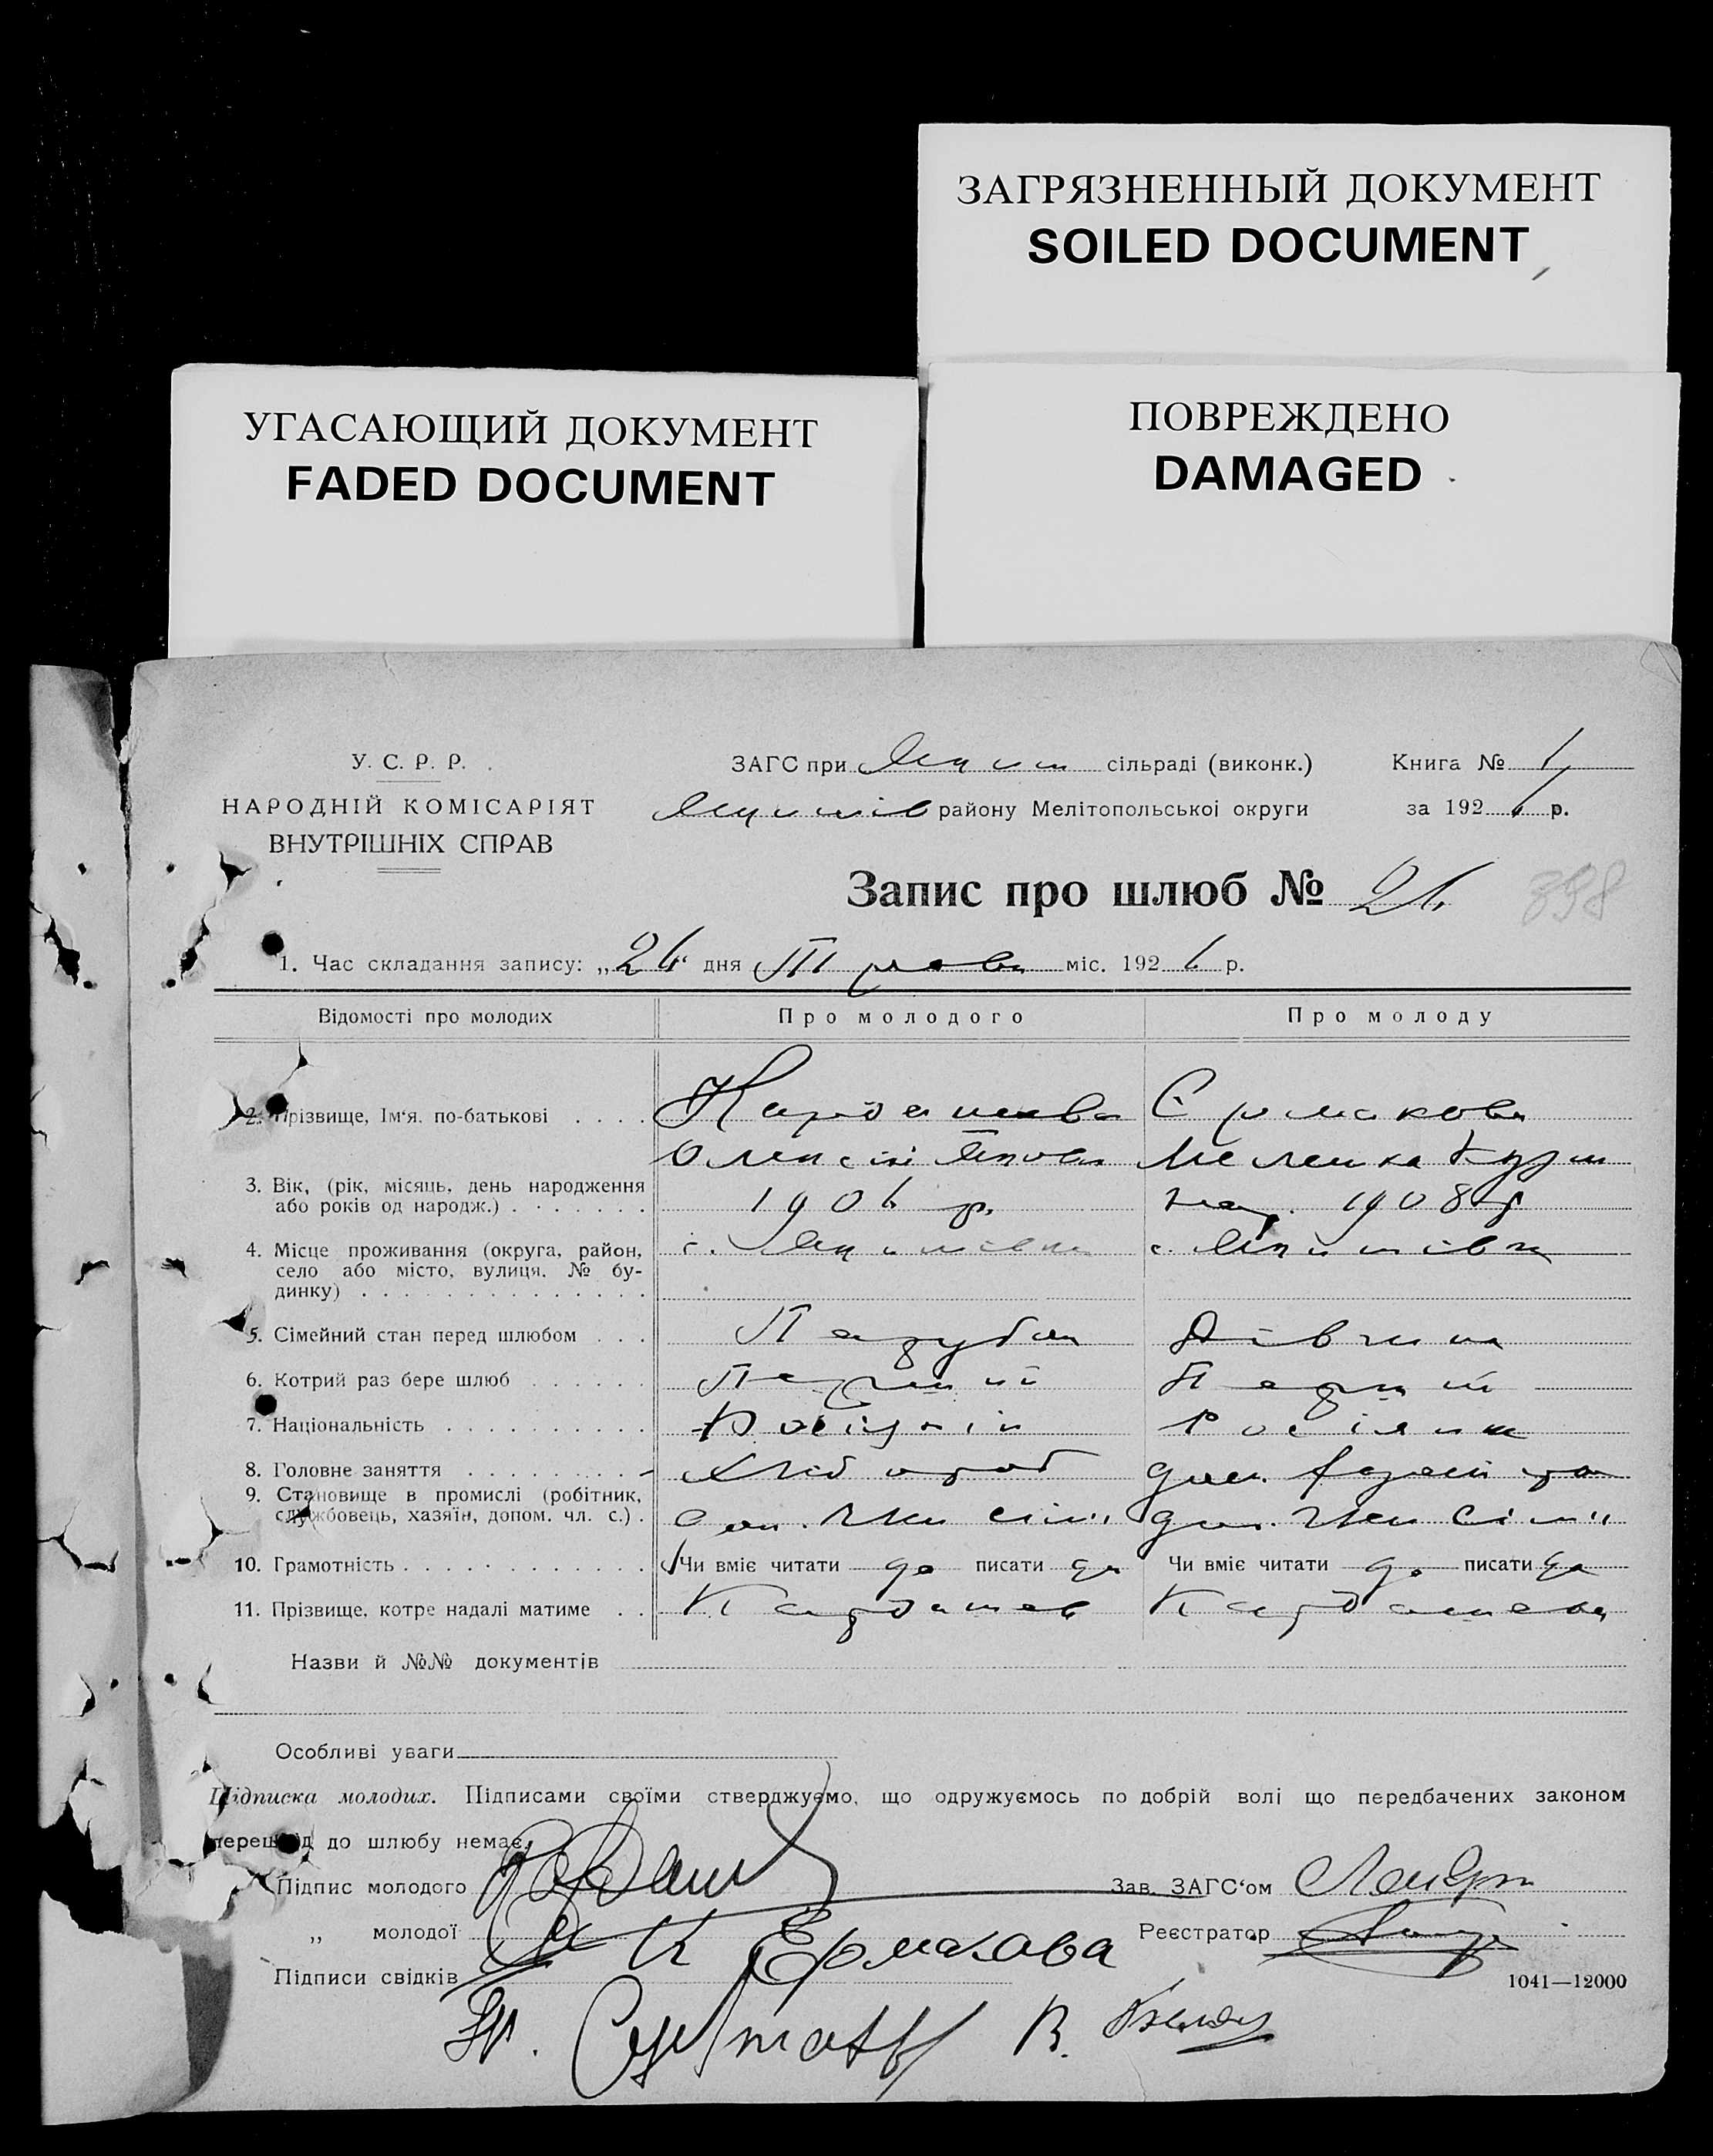 ЗАГРЯЗНЕННЫЙ ДОКУМЕНТ
SOILED DOCUMENT
УГАСАЮЩИЙ ДОКУМЕНТ
FADED DOCUMENT
ПОВРЕЖДЕНО
DAMAGED
У. С. Р. Р.
НАРОДНІЙ КОМІСАРІЯТ
ВНУТРІШНІХ СПРАВ
ЗАГС при сільраді (виконк.)
району Мелітопольської округи
Книга № 1
за 192 р.
Запис про шлюб № 21.
398
1. Час складання запису: „26“ дня Травня міс. 1926 р.
Відомості про молодих Про молодого Про молоду
2. Прізвище, Ім‘я. по-батькові Єрмакова
Меланка
3. Вік, (рік, місяць, день народження
або років од народж.) 1906 р. нар. 1908 р
4. Місце проживання (округа, район, с. с.
село або місто, вулиця, № бу-
динку)
5. Сімейний стан перед шлюбом Парубок Дівчина
6. Котрий раз бере шлюб Перший Перший
7. Національність Росіянін Росіянка
8. Головне заняття Хлібороб дом.
9. Становище в промислі (робітник,
службовець, хазяїн, допом. чл. с.) доп. член сім'ї доп. член сім'ї
10. Грамотність Чи вміє читати да писати да Чи вміє читати да писати да
11. Прізвище, котре надалі матиме Кардашев Кардашева
Назви й №№ документів
Особливі уваги
Підписка молодих. Підписами своїми стверджуємо, що одружуємось по добрій волі що передбачених законом
перешкод до шлюбу немає.
Підпис молодого
Зав. ЗАГС‘ом
„ молодої Ермакова
Реєстратор
Підписи свідків
1041—12000